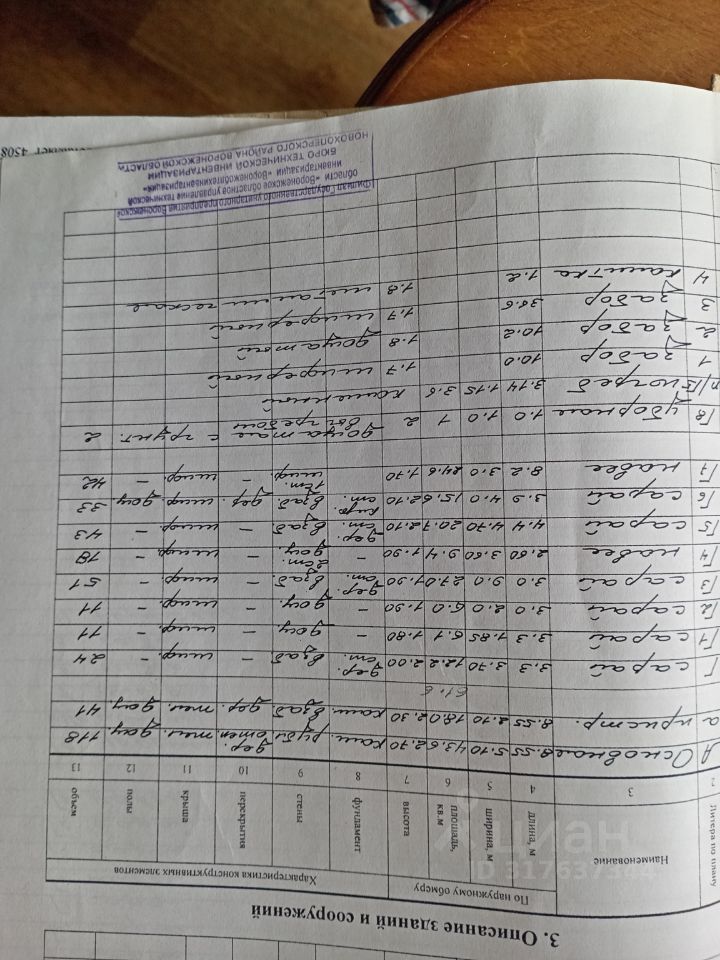 3. Описание зданий и сооружений
Литера по плану
Наименование
По наружному обмеру
Характеристика конструктивных элементов
длина, м
ширина, м
площадь, кв.м
высота
фундамент
стены
перекрытия
крыша
полы
объем
3 4 5 6 7 8 9 10 11 12 13
А Основная 8.55 5.10 43.6 2.70 кам. дер. отеп. тел. дощ 118
а пристр. 8.55 2.10 18.0 2.30 кам. взаб дер. тел. дощ 41
61.6
Г сарай 3.3 3.70 12.2 2.00 дер. ст. взаб - шиф. - 24
Г1 сарай 3.3 1.85 6.1 1.80 - дощ - шиф. - 11
Г2 сарай 3.0 2.0 6.0 1.90 - дощ. - шиф. - 11
Г3 сарай 3.0 9.0 27.0 1.90 дер. ст. взаб - шиф. - 51
Г4 навес 2.60 3.60 9.4 1.90 2 ст. дощ. - шиф. - 18
Г5 сарай 4.4 4.70 20.7 2.10 дер. ст. взаб - шиф. - 43
Г6 сарай 3.9 4.0 15.6 2.10 кир. ст. взаб дер. шиф. дощ. 33
Г7 навес 8.2 3.0 24.6 1.70 1 ст. шиф. - шиф. - 42
Г8 уборная 1.0 1.0 1 2 дощатая с выгребом грунт. 2
п/Г5 погреб 3.14 1.15 3.6 каменный
1 забор 10.0 1.7 шиферный
2 забор 10.2 1.8 дощатый
3 забор 36.6 1.7 шиферный
4 калитка 1.2 1.8 металлическая
Филиал Государственного унитарного предприятия Воронежской
области «Воронежское областное управление технической
инвентаризации «Воронежоблтехинвентаризация»
БЮРО ТЕХНИЧЕСКОЙ ИНВЕНТАРИЗАЦИИ
НОВОХОПЕРСКОГО РАЙОНА ВОРОНЕЖСКОЙ ОБЛАСТИ
4508
циан